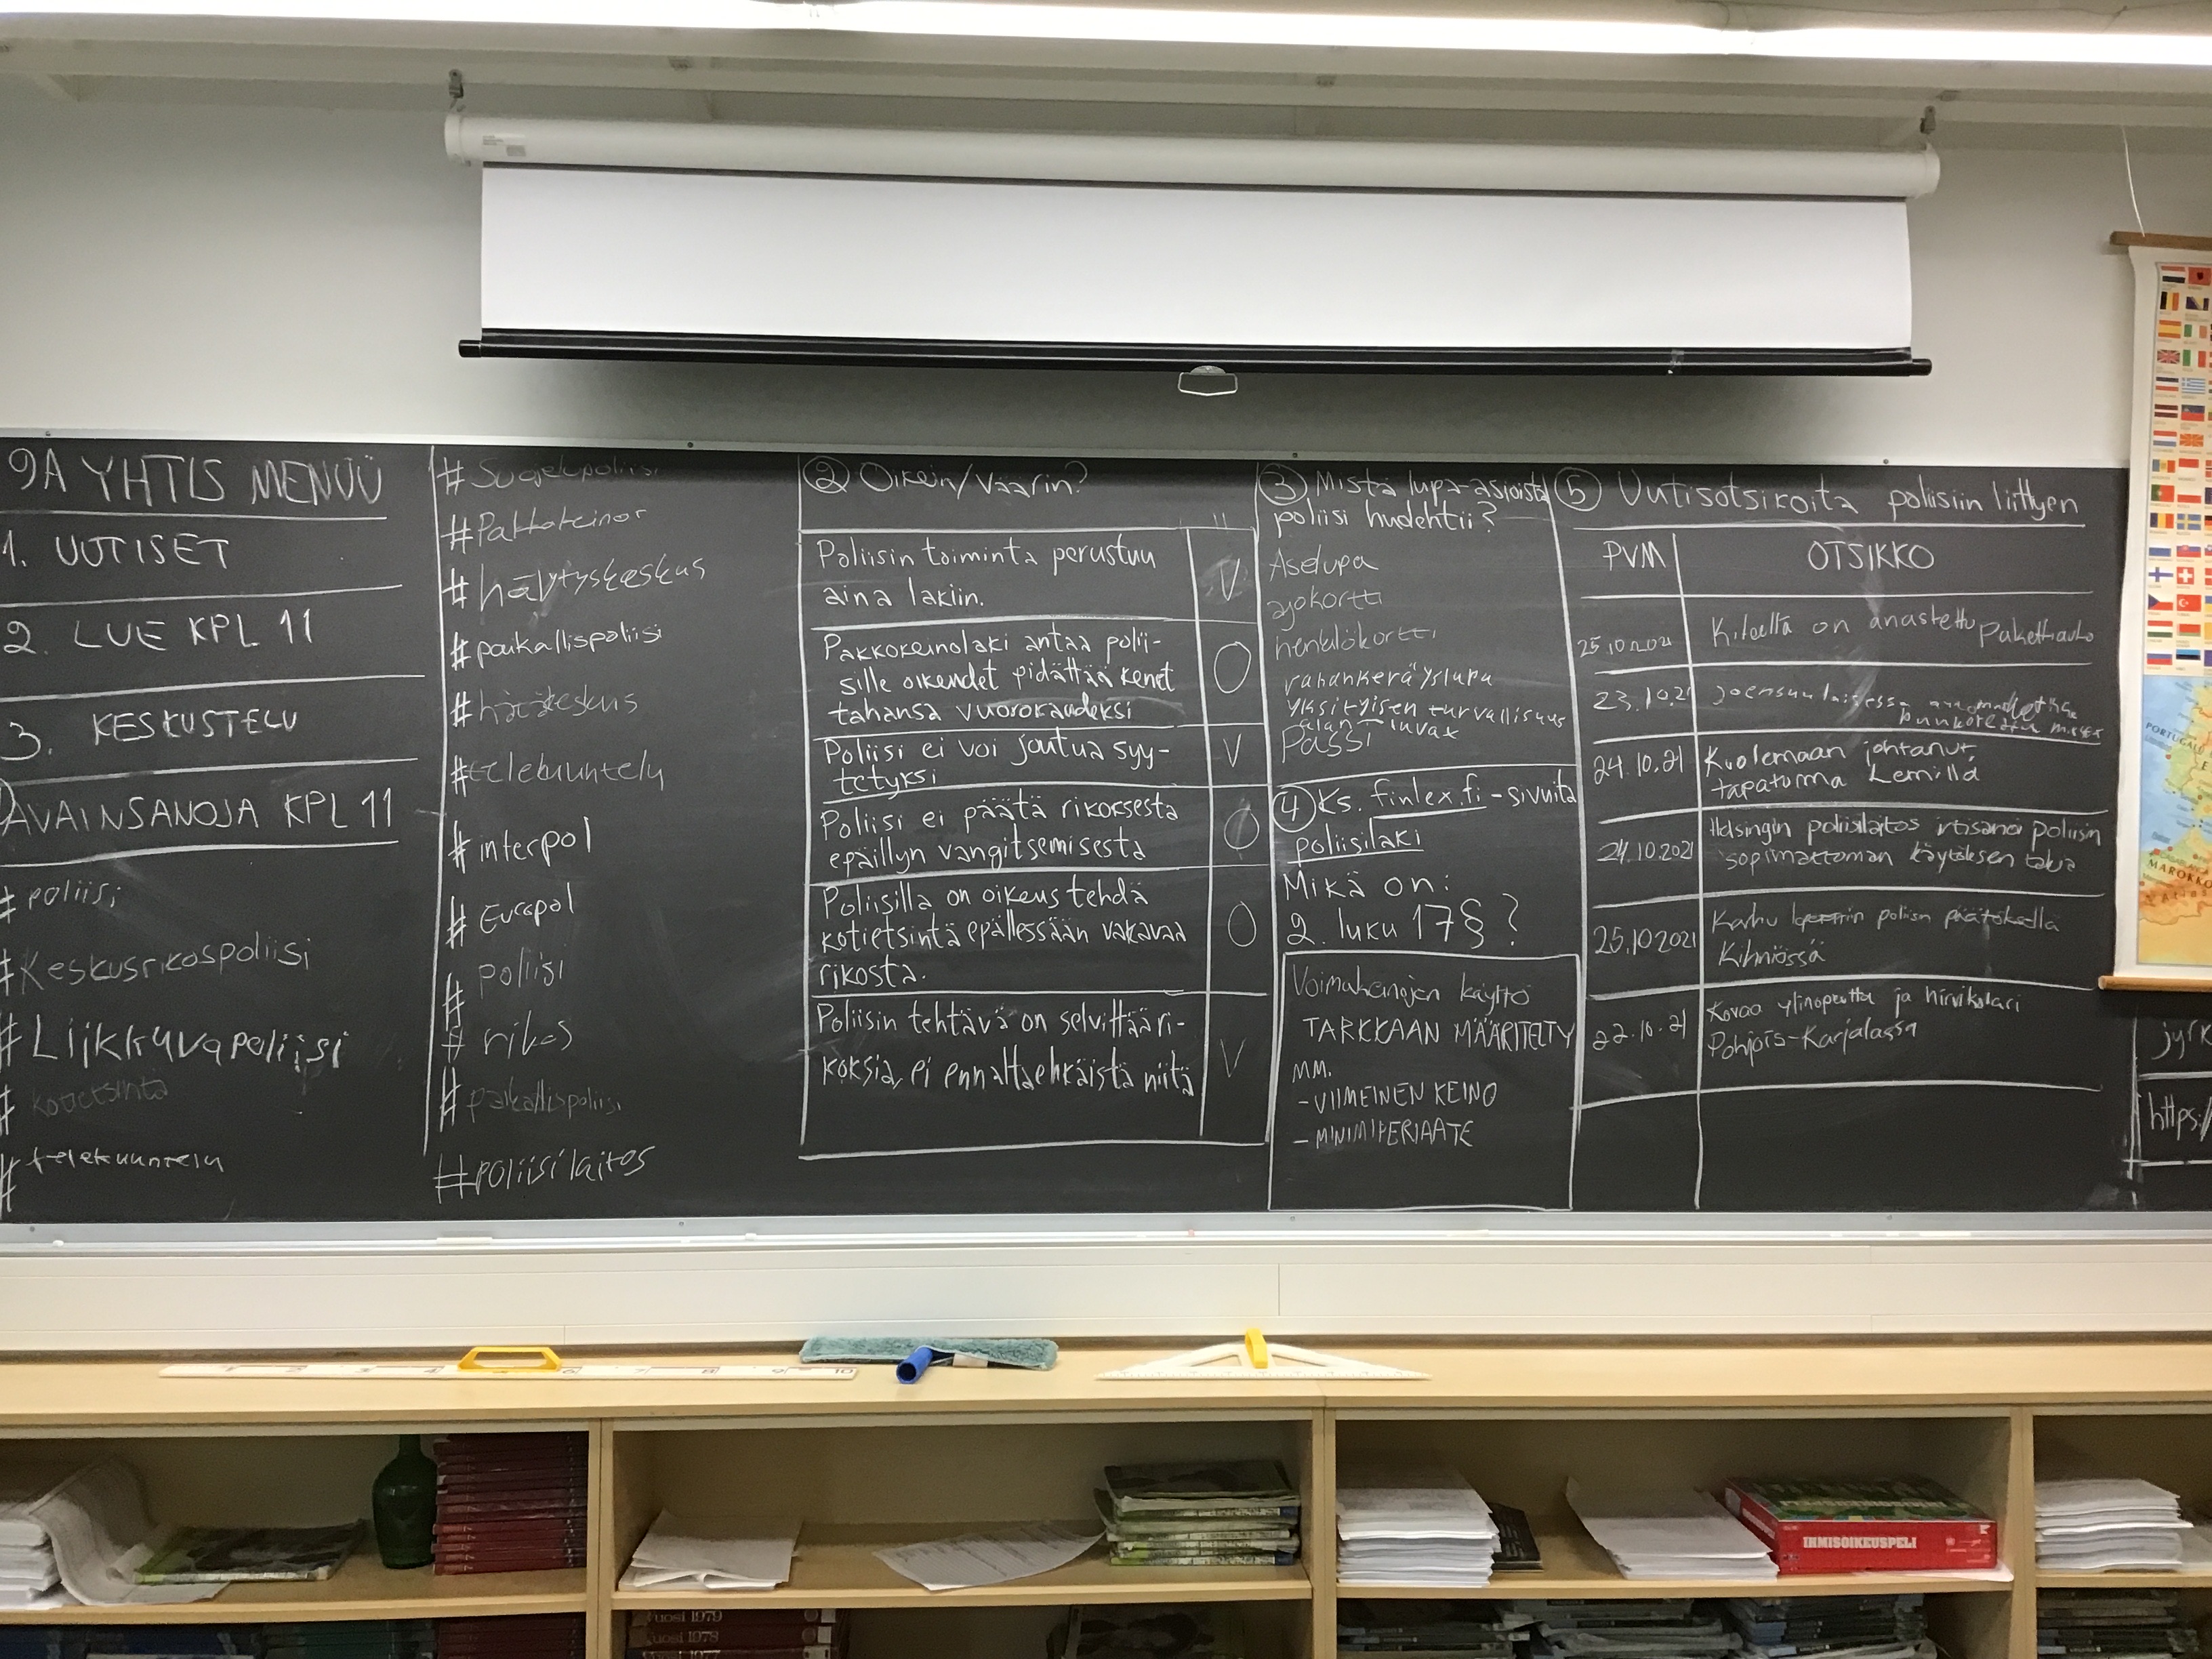 9A YHTIS MENUU
1. UUTISET
2. LUE KPL 11
3. KESKUSTELU
AVAINSANOJA KPL 11
# poliisi
#Keskusrikospoliisi
#Liikkuvapoliisi
# kotietsintä
# telekuuntelu
# Suojelupoliisi
#Pakkokeinot
# hävytyskeskus
#paikallispoliisi
#hätäkeskus
#telekuuntelu
#interpol
# Europol
# poliisi
# rikos
# paikallispoliisi
#poliisilaitos
② Oikein/Väärin?
Poliisin toiminta perustuu
aina lakiin.
V
Pakkokeinolaki antaa polii-
sille oikeudet pidättää kenet
tahansa vuorokaudeksi
O
Poliisi ei voi joutua syy-
tetyksi
V
Poliisi ei päätä rikoksesta
epäillyn vangitsemisesta
O
Poliisilla on oikeus tehdä
kotietsintä epäillessään vakavaa
rikosta.
O
Poliisin tehtävä on selvittää ri-
koksia, ei ennaltaehkäistä niitä
V
③ Mistä lupa-asioista
poliisi huolehtii?
Aselupa
ajokortti
henkilökortti
rahankeräyslupa
yksityisen turvallisuus
alan luvat
Passi
④ Ks. finlex.fi - sivuilta
poliisilaki
Mikä on:
2. luku 17§?
Voimakeinojen käyttö
TARKKAAN MÄÄRITELTY
MM.
- VIIMEINEN KEINO
- MINIMIPERIAATE
⑤ Uutisotsikoita poliisiin liittyen
PVM OTSIKKO
25.10.2021 Kiteeltä on anastettu pakettiauto
23.10.21 Joensuulaisessa
24.10.21 Kuolemaan johtanut
tapaturma Lemillä
24.10.2021 Helsingin poliisilaitos irtisanoi poliisin
sopimattoman käytöksen takia
25.10 2021 Karhu poliisin päätöksellä
Kihniössä
22.10.21 Kovaa ylinopeutta ja hirvikolari
Pohjois-Karjalassa
jyrk
https:/
PORTUGAL
MAROKKO
IHMISOIKEUSPELI
Vuosi 1979
Vuosi 1978